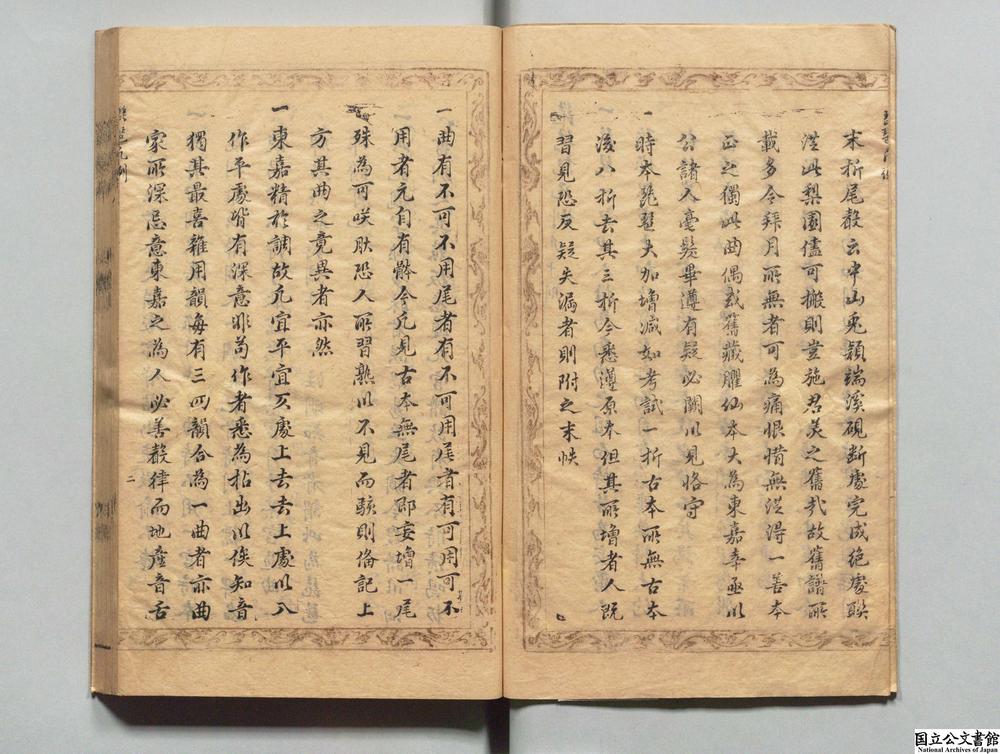 末折尾聲云中山兎頴端溪硯断處完成絶處聮
従此梨園儘可搬則豈施君羙之舊㢤故舊譜所
載多今拜月所無者可為痛恨惜無従得一善本
正之獨此曲偶𫉬舊藏臞仙本大為東嘉幸亟以
公諸人毫髪畢遵有疑必闕以見恪守
一時本琵琶大加增减如考試一折古本所無古本
後八折去其三折今悉遵原本但其所增者人既
習見恐反疑失漏者則附之末帙
一曲有不可不用尾者有不可用尾者有可用可不
用者元自有體今凢見古本無尾者郎妄增一尾
殊為可咲肰恐人所習熟以不見而駭則俻記上
方其曲之竟異者亦然
一東嘉精於調故凢宜平宜仄處上去去上處以入
作平處皆有深意非茍作者悉為拈出以俟知音
獨其最喜雜用韻每有三四韻合為一曲者亦曲
家所深忌意東嘉之為人必善聲律而地產音舌
凡例
二
国立公文書館
National Archives of Japan